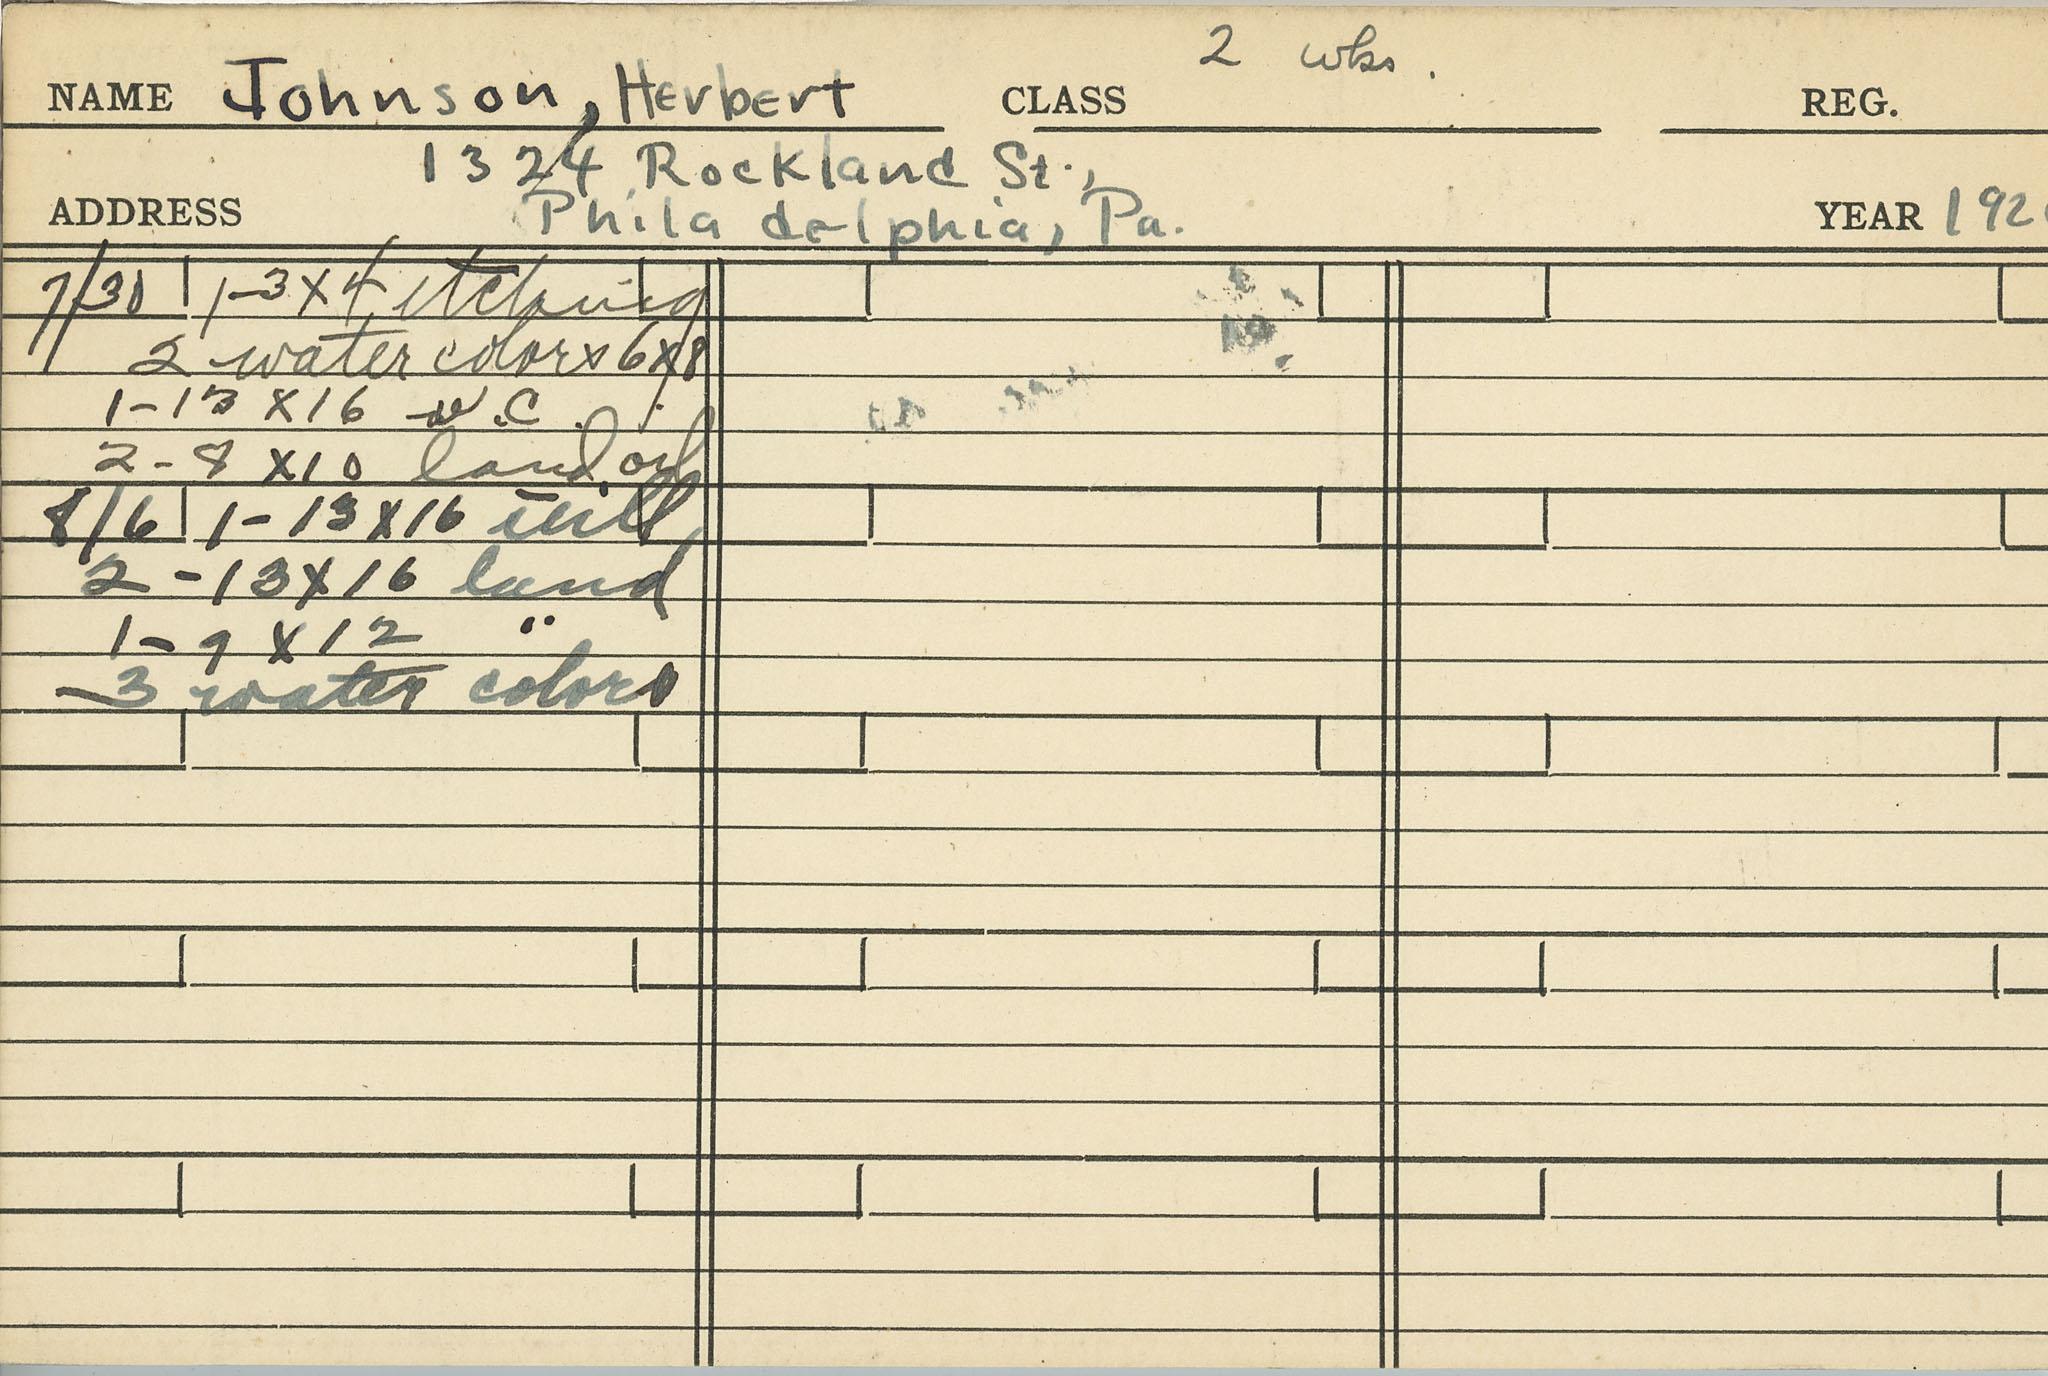 2 wks.
NAME Johnson, Herbert CLASS REG.
1324 Rockland St.,
ADDRESS Philadelphia, Pa. YEAR 192
7/30 1-3x4 etching
2 water colors 6x8
1-13 x16 W.C.
2-8 x10 land. oil
8/6 1-13x16 still
2-13x16 land
1-9 x12 "
3 water colors